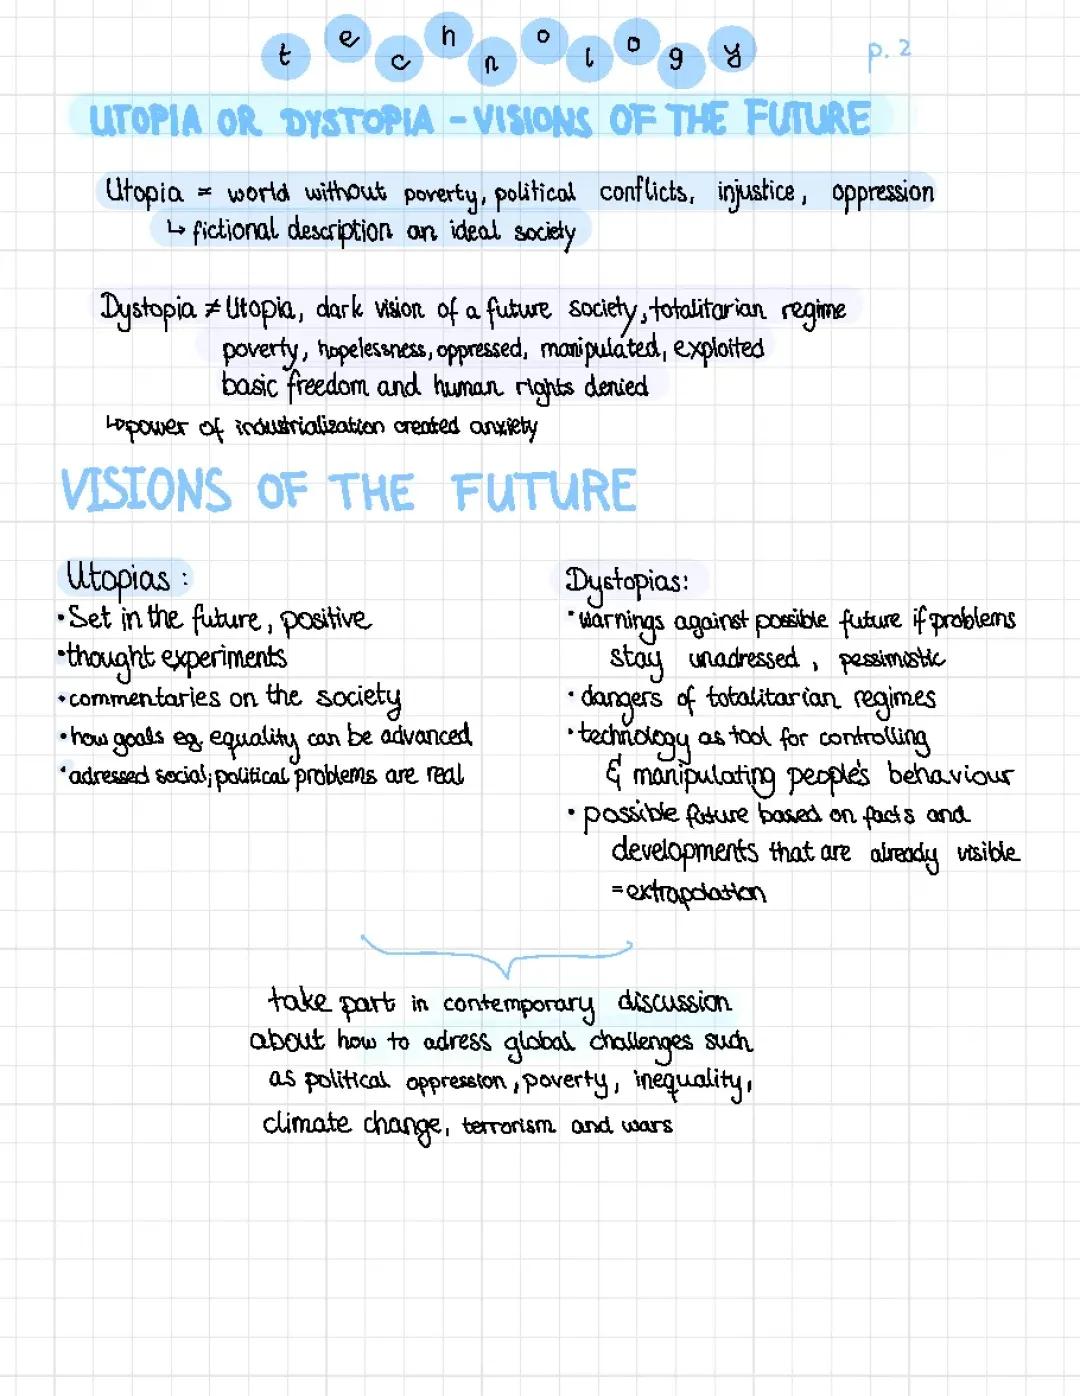 technology
p. 2
UTOPIA OR DYSTOPIA - VISIONS OF THE FUTURE
Utopia = world without poverty, political conflicts, injustice, oppression
↳ fictional description an ideal society
Dystopia ≠ Utopia, dark vision of a future society, totalitarian regime
poverty, hopelessness, oppressed, manipulated, exploited
basic freedom and human rights denied
↳ power of industrialization created anxiety
VISIONS OF THE FUTURE
Utopias :
• Set in the future, positive
• thought experiments
• commentaries on the society
• how goals eg. equality can be advanced
• adressed social; political problems are real
Dystopias:
• warnings against possible future if problems
stay unadressed, pessimistic
• dangers of totalitarian regimes
• technology as tool for controlling
& manipulating people's behaviour
• possible future based on facts and
developments that are already visible
= extrapolation
take part in contemporary discussion
about how to adress global challenges such
as political oppression, poverty, inequality,
climate change, terrorism and wars